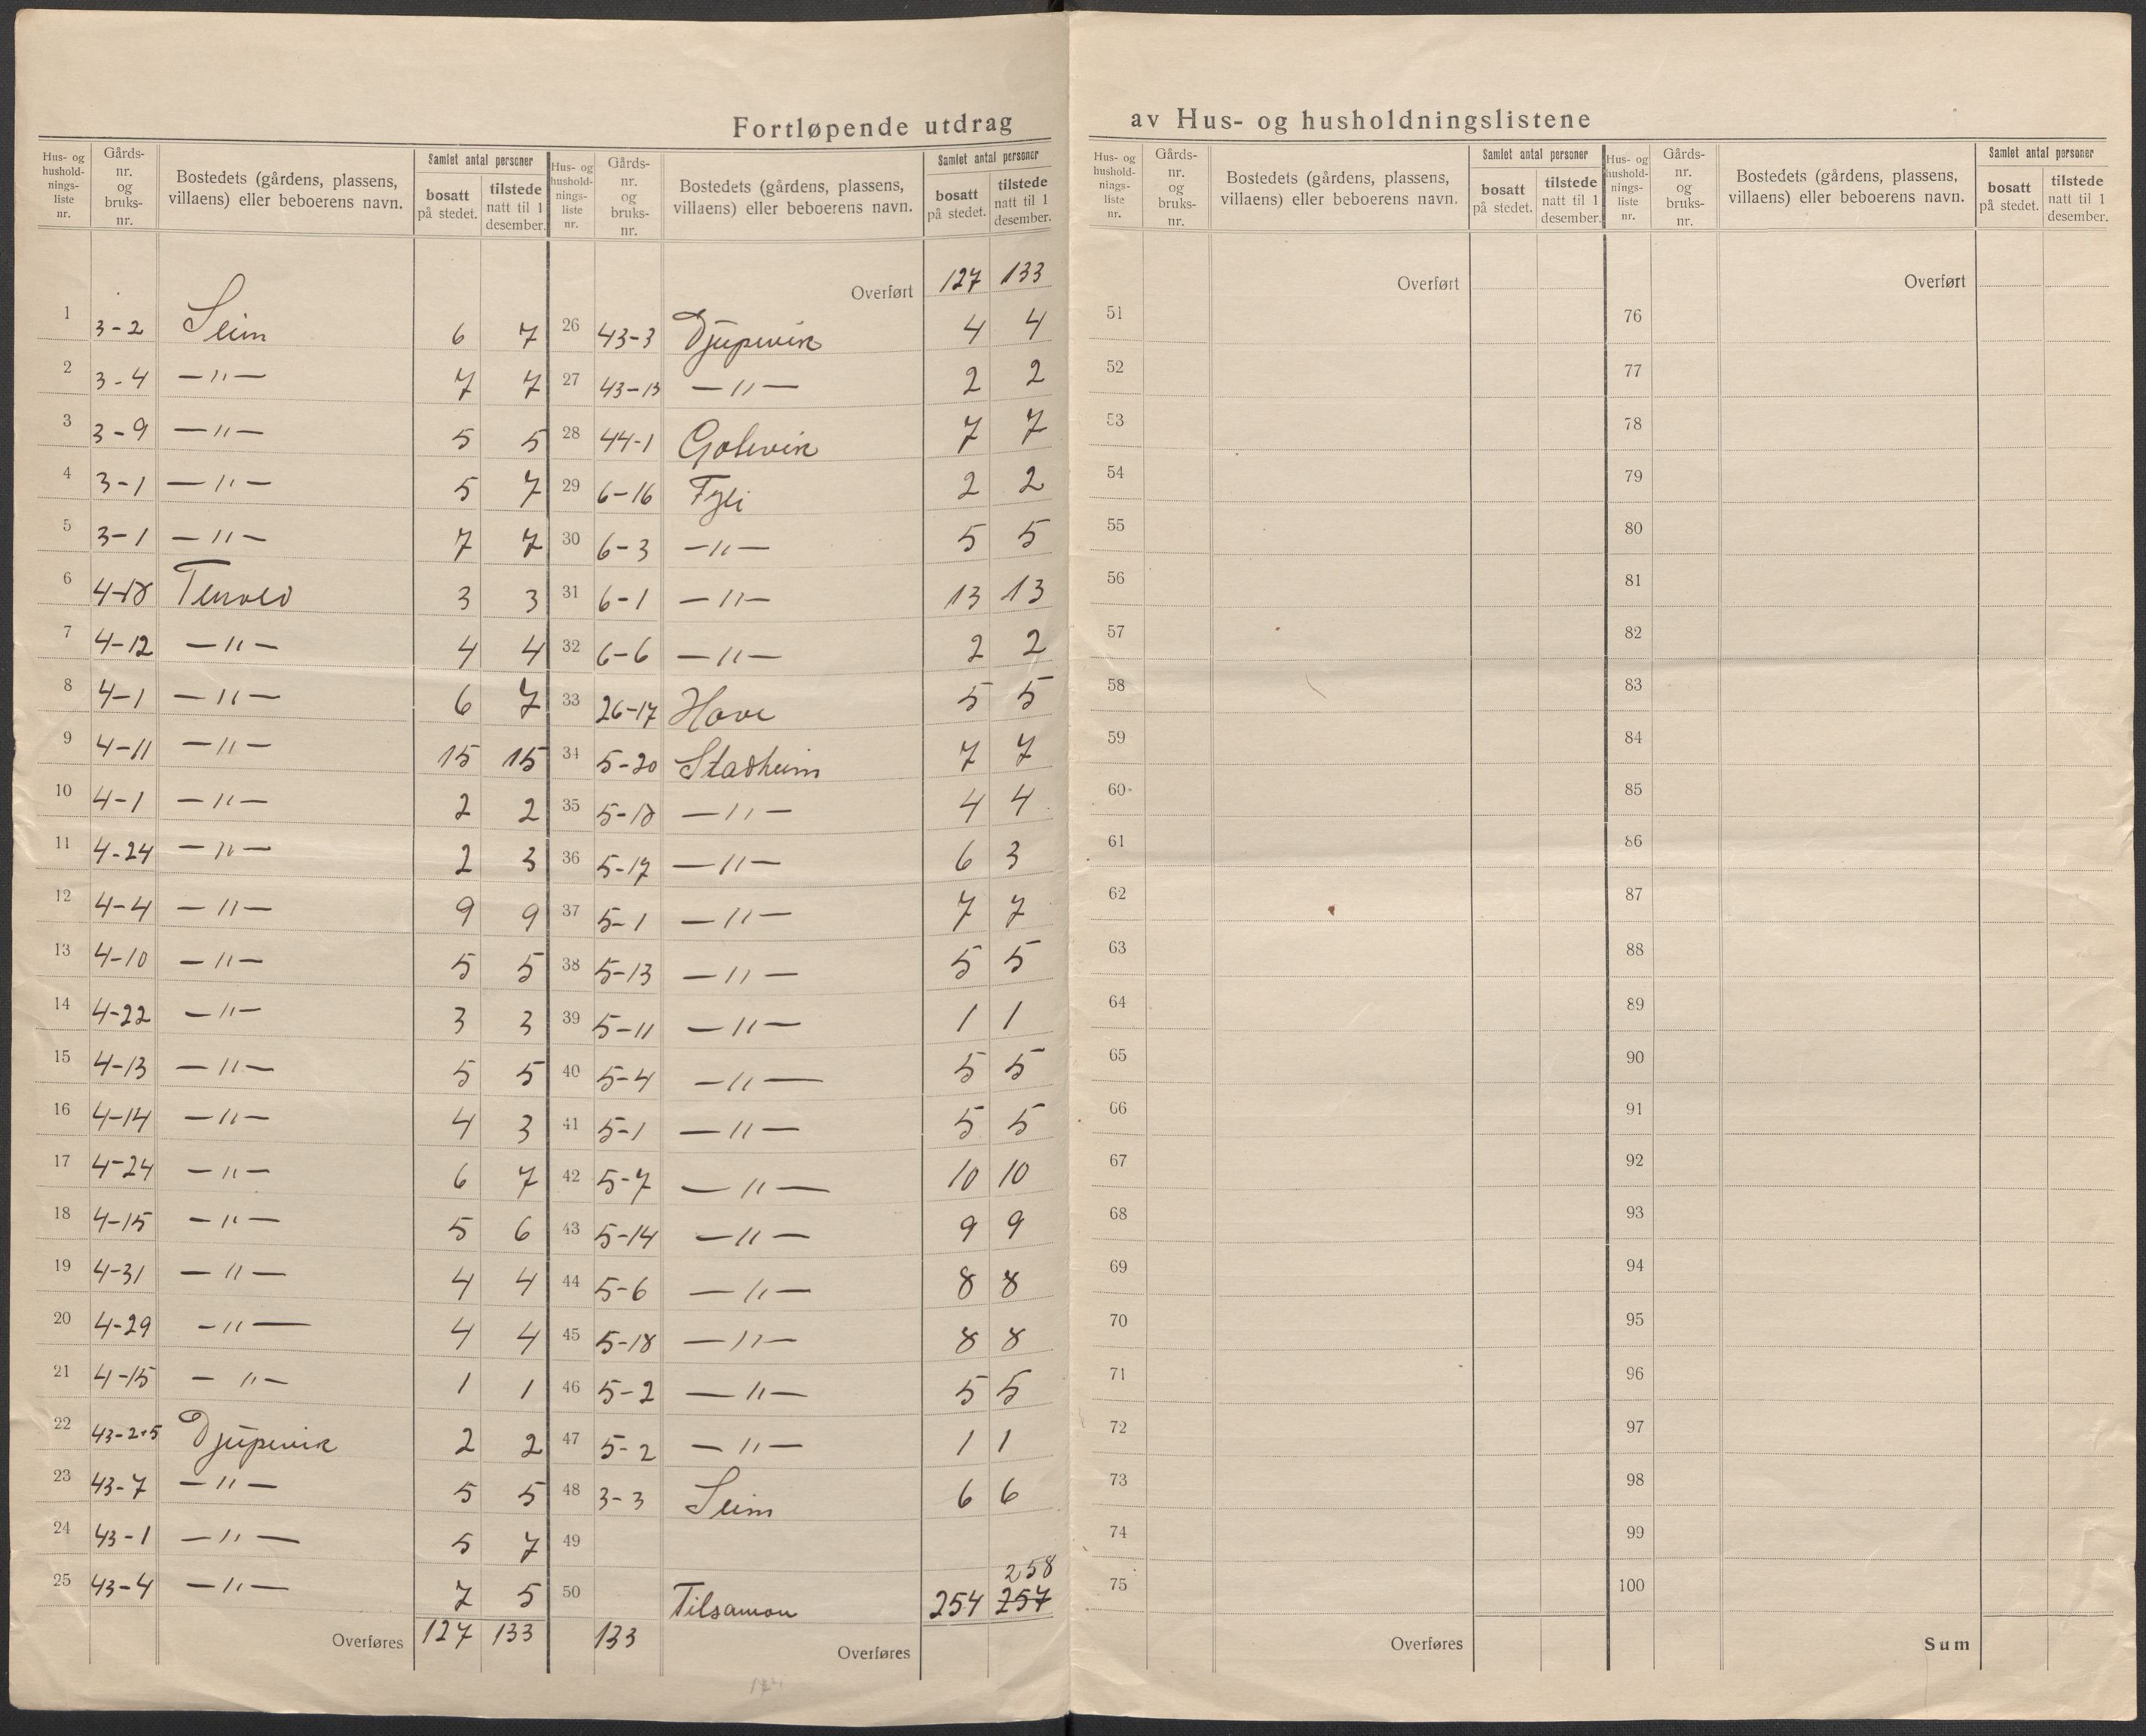 Fortløpende utdrag av Hus- og husholdningslistene
Hus- og hushold-nings-liste nr. Gårds-nr. og bruks-nr. Bostedets (gårdens, plassens, villaens) eller beboerens navn. Samlet antal personer bosatt på stedet. tilstede natt til 1 desember.
1 3-2 Seim 6 7
2 3-4 —"— 7 7
3 3-9 —"— 5 5
4 3-1 —"— 5 7
5 3-1 —"— 7 7
6 4-18 Tenold 3 3
7 4-12 —"— 4 4
8 4-1 —"— 6 7
9 4-11 —"— 15 15
10 4-1 —"— 2 2
11 4-24 —"— 2 3
12 4-4 —"— 9 9
13 4-10 —"— 5 5
14 4-22 —"— 3 3
15 4-13 —"— 5 5
16 4-14 —"— 4 3
17 4-24 —"— 6 7
18 4-15 —"— 5 6
19 4-31 —"— 4 4
20 4-29 —"— 4 4
21 4-15 —"— 1 1
22 43-2+5 Djupevik 2 2
23 43-7 —"— 5 5
24 43-1 —"— 5 7
25 43-4 —"— 7 5
Overføres 127 133
Hus- og hushold-nings-liste nr. Gårds-nr. og bruks-nr. Bostedets (gårdens, plassens, villaens) eller beboerens navn. Samlet antal personer bosatt på stedet. tilstede natt til 1 desember.
Overført 127 133
26 43-3 Djupevik 4 4
27 43-13 —"— 2 2
28 44-1 Golevik 7 7
29 6-16 Fyli 2 2
30 6-3 —"— 5 5
31 6-1 —"— 13 13
32 6-6 —"— 2 2
33 26-17 Hove 5 5
34 5-20 Stadheim 7 7
35 5-18 —"— 4 4
36 5-17 —"— 6 3
37 5-1 —"— 7 7
38 5-13 —"— 5 5
39 5-11 —"— 1 1
40 5-4 —"— 5 5
41 5-1 —"— 5 5
42 5-7 —"— 10 10
43 5-14 —"— 9 9
44 5-6 —"— 8 8
45 5-18 —"— 8 8
46 5-2 —"— 5 5
47 5-2 —"— 1 1
48 3-3 Seim 6 6
49
258
50 Tilsamen 254 257
133 Overføres
Hus- og hushold-nings-liste nr. Gårds-nr. og bruks-nr. Bostedets (gårdens, plassens, villaens) eller beboerens navn. Samlet antal personer bosatt på stedet. tilstede natt til 1 desember.
Overført
51
52
53
54
55
56
57
58
59
60
61
62
63
64
65
66
67
68
69
70
71
72
73
74
75
Overføres
Hus- og hushold-nings-liste nr. Gårds-nr. og bruks-nr. Bostedets (gårdens, plassens, villaens) eller beboerens navn. Samlet antal personer bosatt på stedet. tilstede natt til 1 desember.
Overført
76
77
78
79
80
81
82
83
84
85
86
87
88
89
90
91
92
93
94
95
96
97
98
99
100
Sum